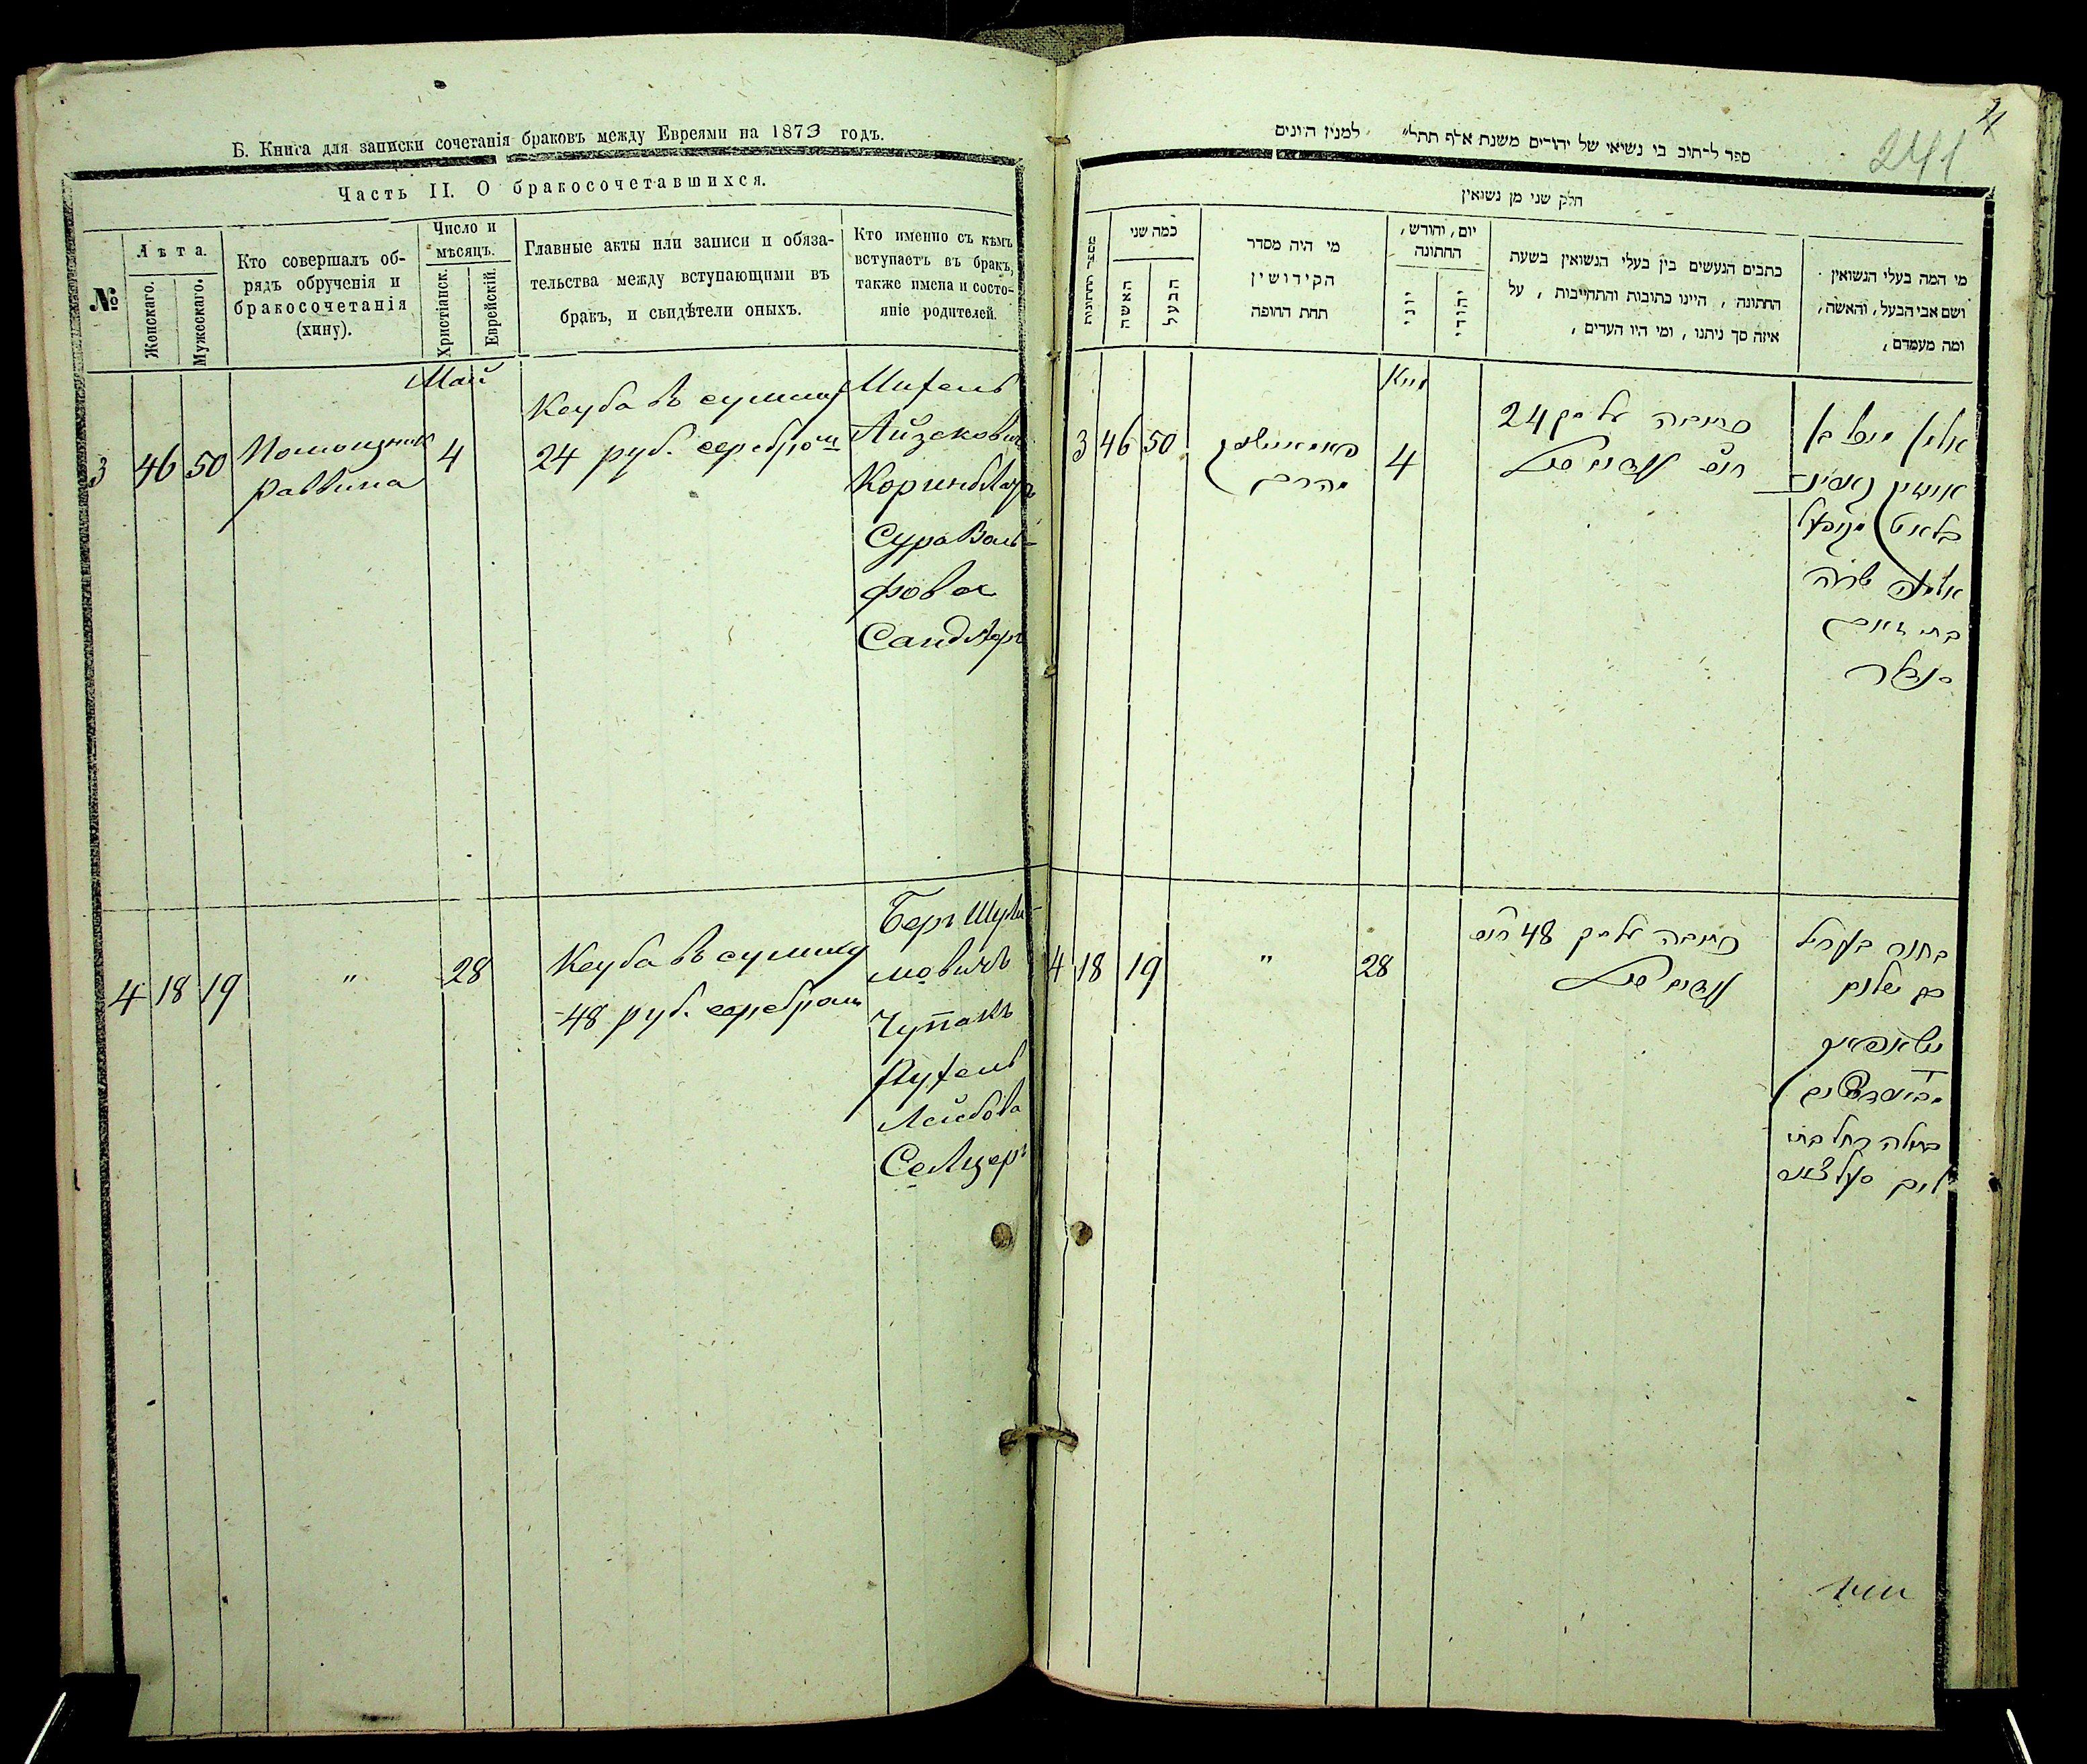 Б. Книга для записки сочетанія браковъ между Евреями на 1873 годъ.
Часть II. О бракосочетавшихся.
№
Лѣта.
Женскаго.
Мужескаго.
Кто совершалъ об-
рядъ обрученія и
бракосочетанія
(хипу).
Число и
мѣсяцъ.
Христіанск.
Еврейскій.
Главные акты или записи и обяза-
тельства между вступающими въ
бракъ, и свидѣтели оныхъ.
Кто именно съ кѣмъ
вступаетъ въ бракъ,
также имена и состо-
яніе родителей.
Май
3
46
50
Помощник
раввина
4
Ктуба въ сумму
24 руб. серебром
Айзекович
Сура Воль-
фова
Сандлеръ
4
18
19
"
28
Ктуба въ сумму
48 руб. серебром
Беръ Шулы-
мовичъ
Чупакъ
Рухель
Лейбова
Селцеръ
241
ספר לכתוב בו נשיאי של יהודים משנת אלף תתל״ למנין היונים
חלק שני מן נשואין
מספר החתונות
כמה שני
האשה
הבעל
מי היה מסדר
הקידושין
תחת החופה
יום, והורש,
החתונה
יוני
יהודי
כתבים הנעשים בין בעלי הנשואין בשעת
החתונה, היינו כתובות והתחייבות, על
איזה סך ניתנו, ומי היו העדים,
מי המה בעלי הנשואין
ושם אבי הבעל, והאשה,
ומה מעמדם,
מיי
3
46
50
4
כתובה על סך 24
אלמנה שרה
בת זאב
סנדלר
4
18
19
"
28
כתובה על סך 48
בן שלום
בתולה רחל בת
ליב סעלצער